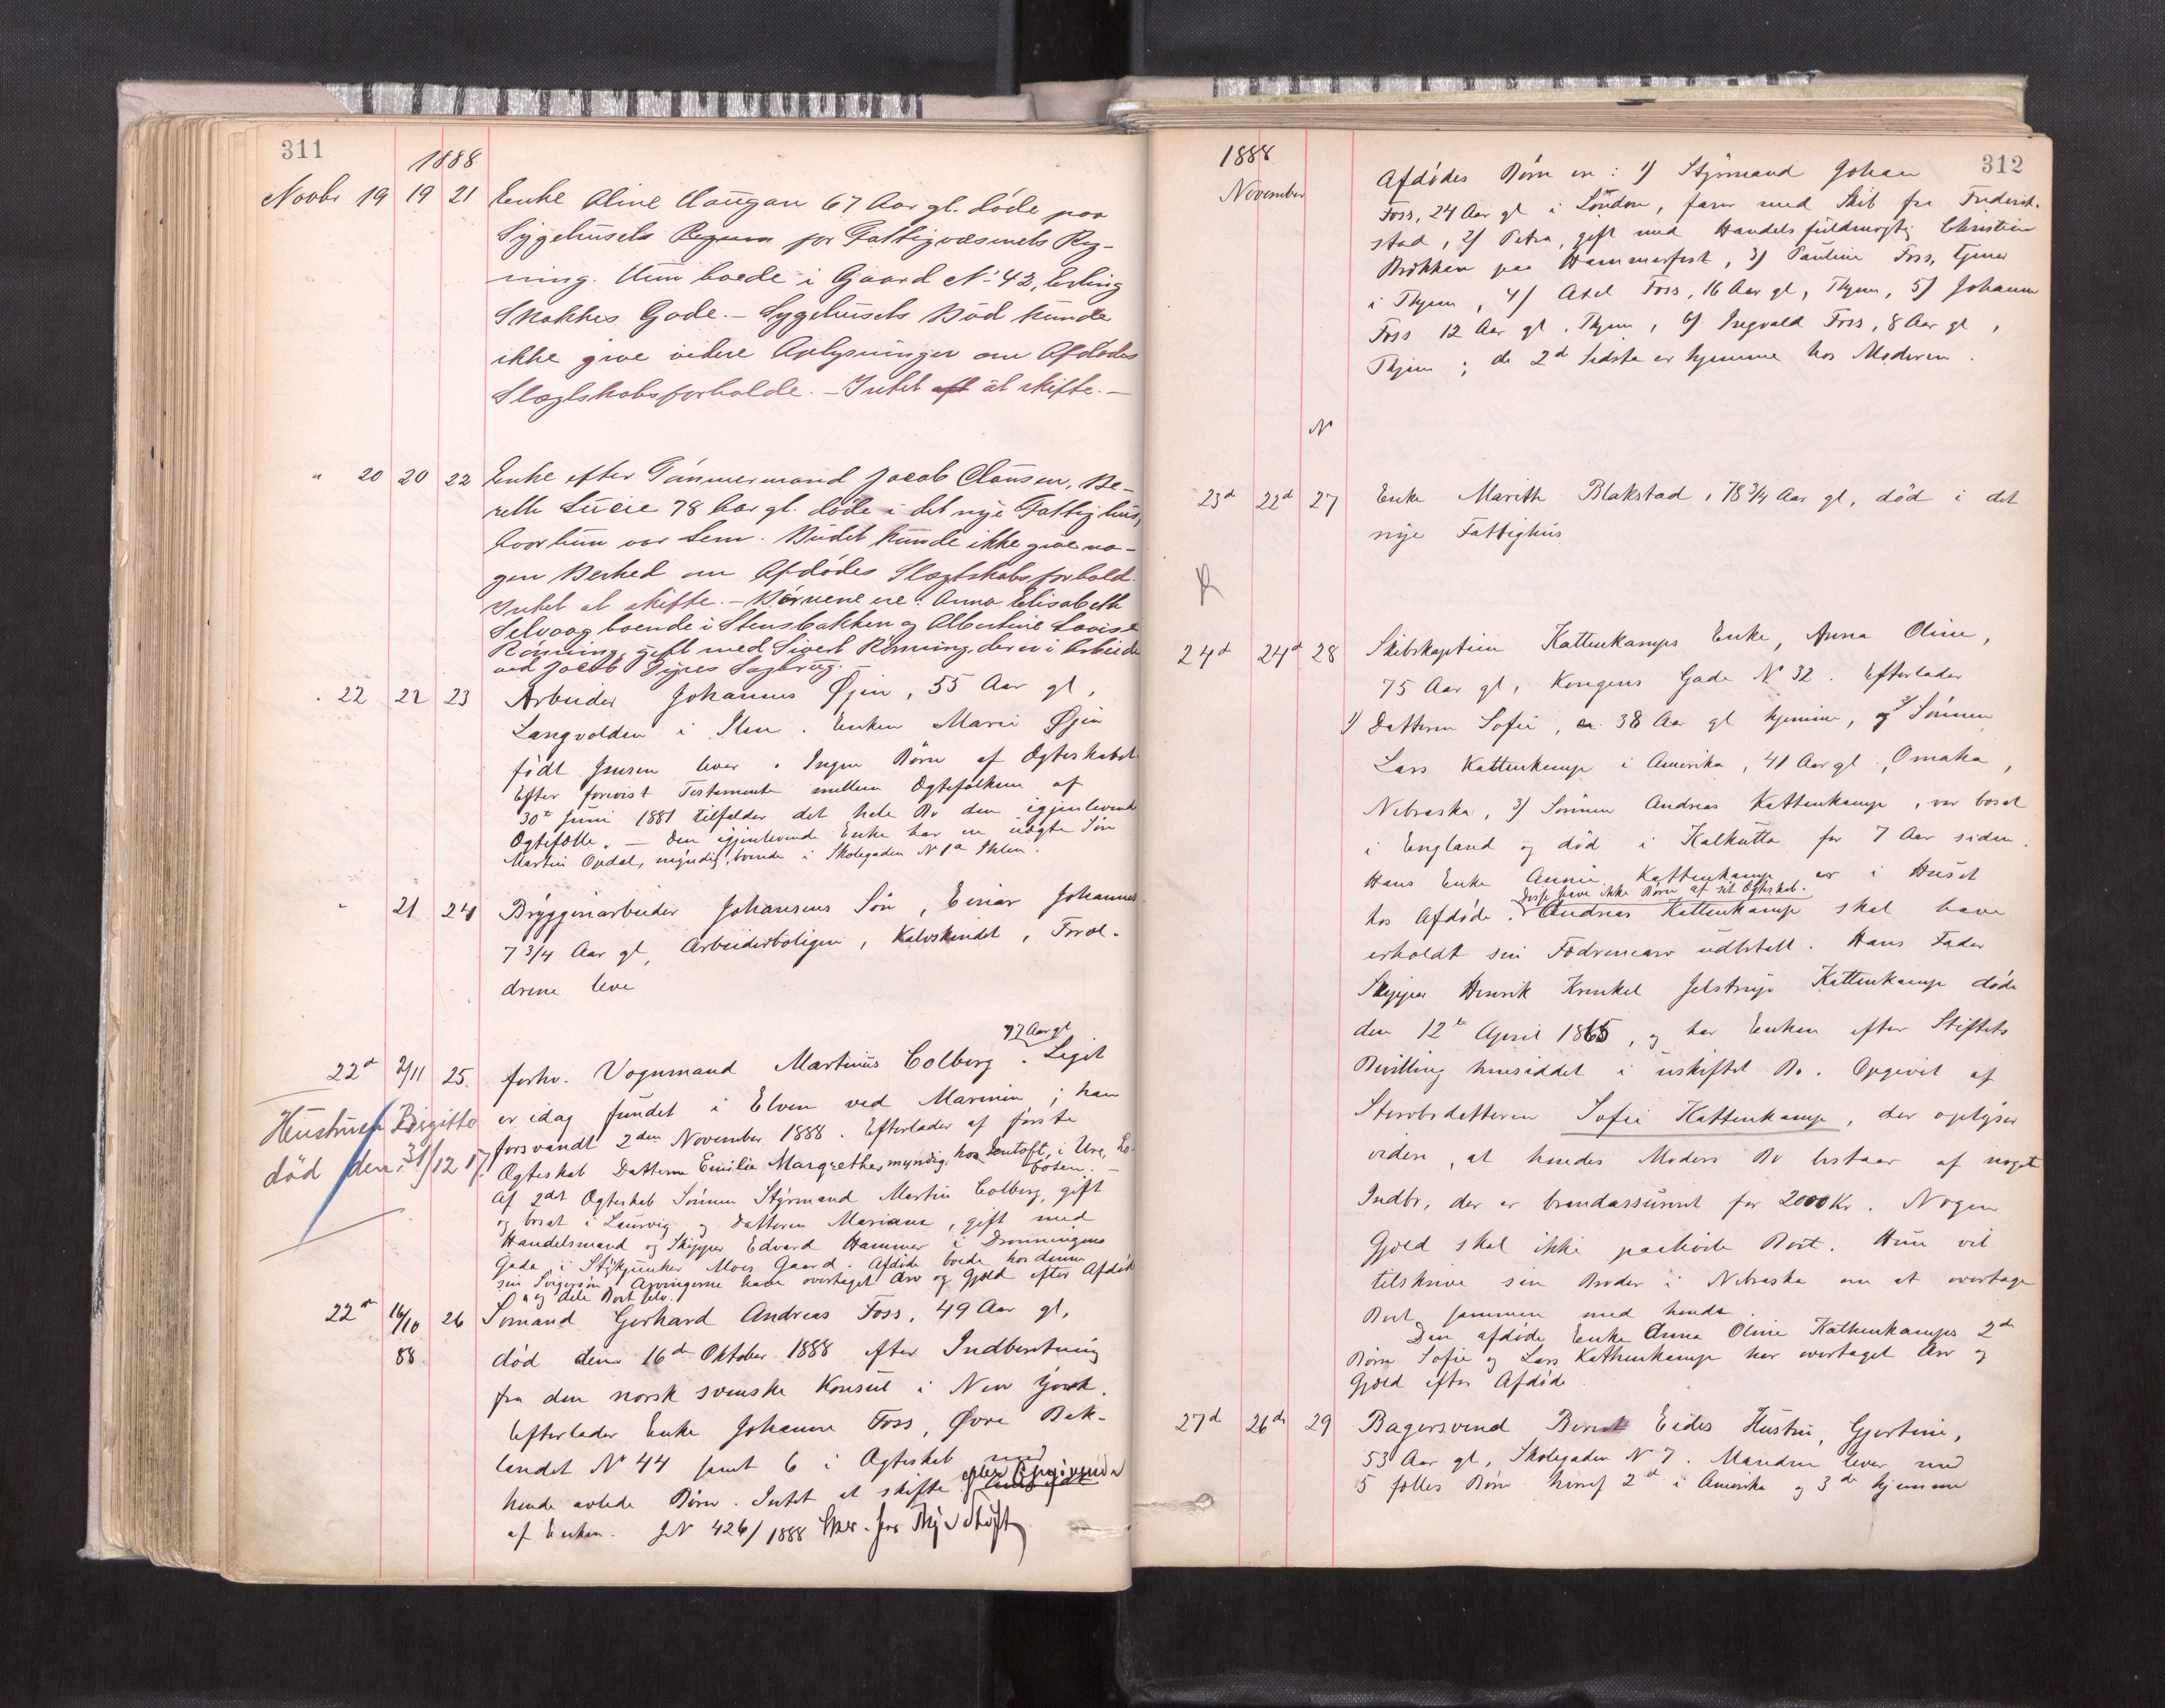 311
1888
Novbr 19 19 21 Enke Oline Haugan 67 Aar gl. døde paa
Sygehuset for Fattigvæsenets Reg-
ning. Hun boede i Gaard No 43, Erling
Skakkes Gade. – Sygehusets Bud kunde
ikke give videre Oplysninger om Afdødes
Slægtskabsforholde. – Intet at skifte. –
" 20 20 22 Enke efter Tømmermand Jacob Clausen, Be-
rette Lucie 78 Aar gl. døde i det nye Fattighus,
hvor hun var Lem. Budet kunde ikke give no-
gen Besked om Afdødes Slægtskabsforhold.
Intet at skifte. – Børnene ere: Anna Elisabeth
Selvaag boende i Stensbakken og Albertine Lovise
Rønning, gift med Sivert Rønning, der er i Arbeide
ved Jacob Digres Sagbrug. –
. 22 22 23 Arbeider Johannes Øjen, 55 Aar gl,
Langvolden i Ilen. Enken Marie Øjen
født Jensen lever. Ingen Børn af Ægteskabet
Efter forevist Testamente mellem Ægtefolkene af
30te Juni 1881 tilfalder det hele Bo den igjenlevende
Ægtefælle. – Den igjenlevende Enke har en uægte Søn
Martin Opdal, myndig, boende i Skolegaden No 1a Ihlen.
" 21 24 Bryggeriarbeider Johansens Søn, Einar Johannes
7 3/4 Aar gl, Arbeiderboligen, Kalvskindet, Foræl-
drene leve
77 Aar gl
22de 2/11 25. forhv. Vognmand Martinus Colberg. Liget
er idag fundet i Elven ved Marinen; han
forsvandt 2den November 1888. Efterlader af første
Ægteskab Datteren Emilie Margrethe, myndig, hos Jentoft, i Ure, Lo-
foten. –
Af 2det Ægteskab Sønnen Styrmand Martin Colberg, gift
og bosat i Laurvig og Datteren Mariana, gift med
Handelsmand og Skipper Edvard Hammer i Dronningens
Gade i Stykjunker Moes Gaard. Afdøde boede hos denne
sin Svigersøn. Arvingerne have overtaget Arv og Gjæld efter Afdøde
og dele Boet selv.
Hustruen Birgitte
død den 31/12 17.
22de 16/10 26 Sømand Gerhard Andreas Foss, 49 Aar gl,
88 død den 16de Oktober 1888 efter Indberetning
fra den norsk svenske Konsul i New York.
Efterlader Enke Johanne Foss, Øvre Bak-
landet No 44 samt 6 i Ægteskab med
hende avlede Børn. Intet at skifte efter Opgivende
af Enken. JN 426/1888
1888
312
November
Afdødes Børn ere: 1) Styrmand Johan
Foss, 24 Aar gl i London, farer med Skib fra Frederik-
stad, 2) Petra, gift med Handelsfuldmægtig Christian
Brøkken paa Hammerfest, 3) Pauline Foss, tjener
i Thjem, 4) Axel Foss, 16 Aar gl, Thjem, 5) Johanne
Foss 12 Aar gl. Thjem, 6) Ingvald Foss, 8 Aar gl,
Thjem; de 2de sidste er hjemme hos Moderen.
N
23de 22de 27 Enke Marith Blakstad, 78 3/4 Aar gl, død i det
nye Fattighus
24de 24de 28 Skibskaptein Kattenkamps Enke, Anna Oline,
75 Aar gl, Kongens Gade No 32. Efterlader
1) Datteren Sofie, ca. 38 Aar gl hjemme, og 2) Sønnen
Lars Kattenkamp i Amerika, 41 Aar gl, Omaha,
Nebraska, 3) Sønnen Andreas Kattenkamp, var bosat
i England og død i Kalkutta for 7 Aar siden.
Hans Enke Annie Kattenkamp er i Huset
Disse have ikke Børn af sit Ægteskab.
hos Afdøde. Andreas Kattenkamp skal have
erholdt sin Fædrenearv udbetalt. Hans Fader
Skipper Henrik Krenkel Jelstrup Kattenkamp døde
den 12te April 1865, og har Enken efter Stiftets
Bevilling hensiddet i uskiftet Bo. Opgivet af
Stervbodatteren Sofie Kattenkamp, der oplyser
videre, at hendes Moders Bo bestaar af noget
Indbo, der er brandassureret for 2000 Kr. Nogen
Gjæld skal ikke paahvile Boet. Hun vil
tilskrive sin Broder i Nebraska om at overtage
Boet sammen med hende.
Den afdøde Enke Anna Oline Kattenkamps 2de
Børn Sofie og Lars Kattenkamp har overtaget Arv og
Gjæld efter Afdøde
27de 26de 29 Bagersvend Bernt Eides Hustru, Gjertine,
53 Aar gl, Skolegaden No 7. Manden lever med
5 fælles Børn hvoraf 2de i Amerika og 3de hjemme